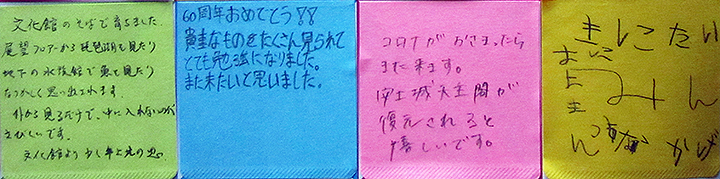 文化館のそばで育ちました。
展望フロアーから琵琶湖を見たり
地下の水族館で魚を見たり
なつかしく思い出されます。
外から見るだけで、中に入れないのが
さびしいです。
文化館より少し年上の
60周年おめでとう!!
貴重なものをたくさん見られて
とても勉強になりました。
また来たいと思いました。
コロナがおさまったら
また来ます。
安土城天主閣が
復元されると
嬉しいです。